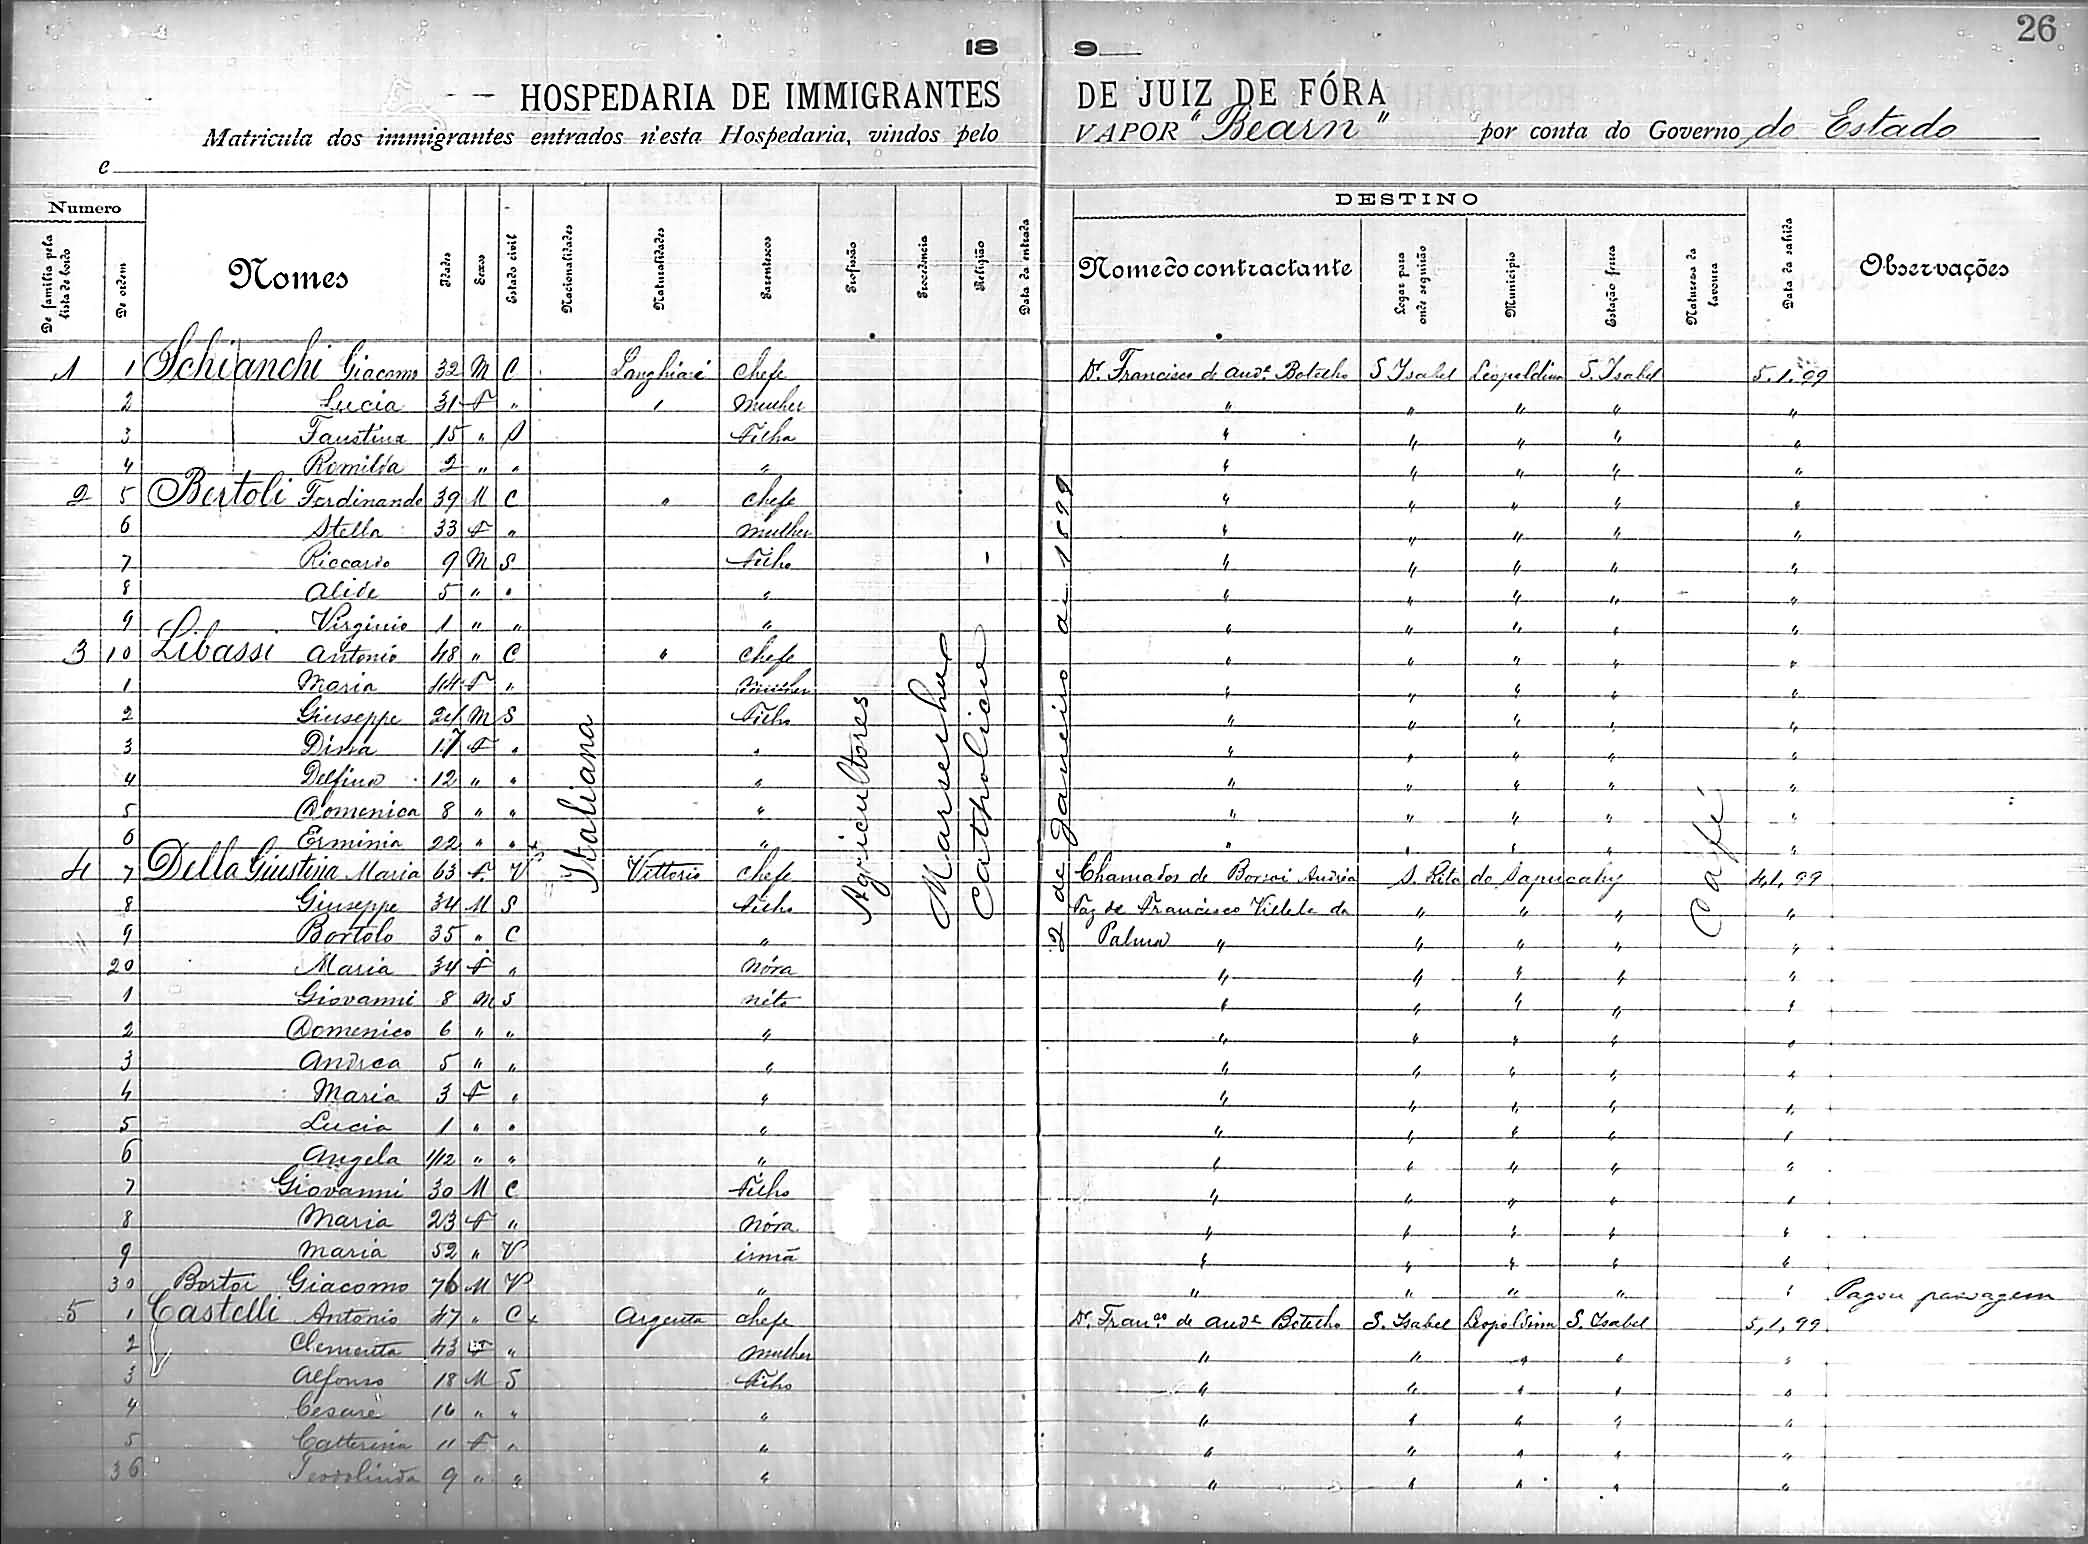 26
18 9
HOSPEDARIA DE IMMIGRANTES DE JUIZ DE FÓRA
Matricula dos immigrantes entrados n'esta Hospedaria, vindos pelo VAPOR "Bearn" por conta do Governo do Estado
e
Numero DESTINO
De familia pela lista de bordo De ordem Nomes Idades Sexos Estado civil Nacionalidades Naturalidades Parentescos Profissão Procedencia Religião Data da entrada Nome do contractante Logar para onde seguirão Municipio Estação ferrea Natureza da lavoura Data da sahida Observações
Italiana Agricultores Marselha Catholica 2 de Janeiro de 1899 Café
1 1 Schianchi Giacomo 32 M C Chefe Dr. Francisco de Andr.e Botelho S Isabel Leopoldina S. Isabel 5.1.99
2 Lucia 31 F " " Mulher " " " " "
3 Faustina 15 " S Filha " " " " "
4 Romilda 2 " " " " " " " "
2 5 Bertoli Ferdinando 39 M C " Chefe " " " " "
6 Stella 33 F " Mulher " " " " "
7 Riccardo 9 M S Filho " " " " "
8 Alide 5 " " " " " " " "
9 Virginio 1 " " " " " " " "
3 10 Libassi Antonio 48 " C " Chefe " " " " "
1 Maria 44 F " Mulher " " " " "
2 Giuseppe 21 M S Filho " " " " "
3 Dina 17 F " " " " " " "
4 Delfina 12 " " " " " " " "
5 Domenica 8 " " " " " " " "
6 Erminia 22 " " " " " " " "
4 7 Della Giustina Maria 63 F. V Vittorio Chefe Chamados de Andréa S. Rita do Sapucahy 4,1,99
8 Giuseppe 34 M S Filho Faz de Francisco Villela da " " " "
9 Bortolo 35 " C " Palma " " " " "
20 Maria 34 F " Nóra " " " " "
1 Giovanni 8 M S néto " " " " "
2 Domenico 6 " " " " " " " "
3 Andrea 5 " " " " " " " "
4 Maria 3 F " " " " " " "
5 Lucia 1 " " " " " " " "
6 Angela 1/12 " " " " " " " "
7 Giovanni 30 M C Filho " " " " "
8 Maria 23 F " Nóra " " " " "
9 Maria 52 " V irmã " " " " "
30 Giacomo 76 M V " " " " " " Pagou passagem
5 1 Castelli Antonio 47 " C Argenta Chefe Dr. Fran.co de Andr.e Botelho S. Isabel Leopoldina S. Isabel 5,1,99
2 Clementa 43 F " Mulher " " " " "
3 Alfonso 18 M S Filho " " " " "
4 Cesare 16 " " " " " " " "
5 Catterina 11 F " " " " " " "
36 Teodolinda 9 " " " " " " " "